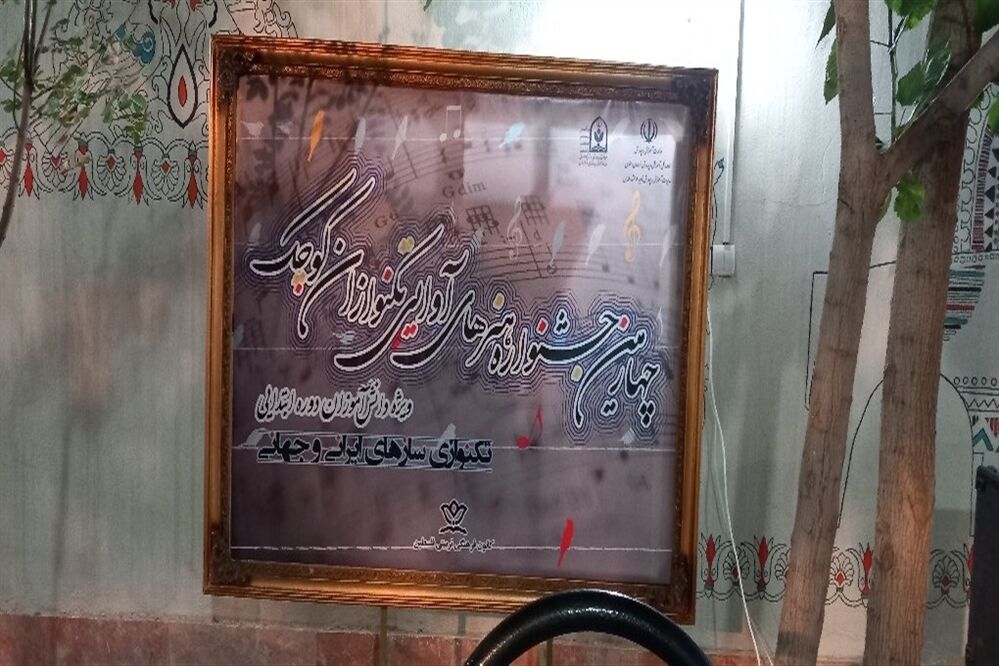 وزارت آموزش و پرورش
چهارمین جشنواره هنرهای آوایی تکنوازان کوچک
ویژه دانش‌آموزان دوره ابتدایی
تکنوازی سازهای ایرانی و جهانی
کانون فرهنگی تربیتی فلسطین
Gdim